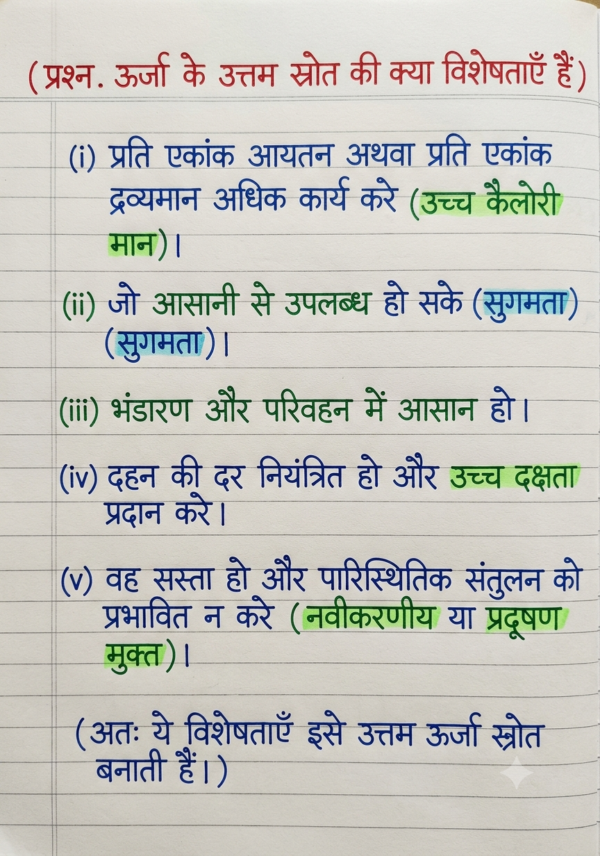 (प्रश्न. ऊर्जा के उत्तम स्रोत की क्या विशेषताएँ हैं)
(i) प्रति एकांक आयतन अथवा प्रति एकांक
द्रव्यमान अधिक कार्य करे (उच्च कैलोरी
मान)।
(ii) जो आसानी से उपलब्ध हो सके (सुगमता)
(सुगमता)।
(iii) भंडारण और परिवहन में आसान हो।
(iv) दहन की दर नियंत्रित हो और उच्च दक्षता
प्रदान करे।
(v) वह सस्ता हो और पारिस्थितिक संतुलन को
प्रभावित न करे (नवीकरणीय या प्रदूषण
मुक्त)।
(अतः ये विशेषताएँ इसे उत्तम ऊर्जा स्रोत
बनाती हैं।)